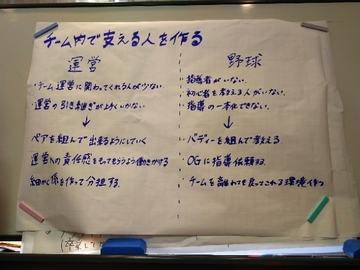 チーム内で支える人を作る
運営
・チーム運営に関わってくれる人が少ない
・運営の引き継ぎが上手くいかない
ペアを組んで出来るようにしていく
運営への責任感をもってもらうよう働きかける
細かく係を作って分担する
野球
・指導者がいない
・初心者を教える人がいない。
・指導の一本化できない。
・バディーを組んで教える
・OGに指導依頼する
・チームを離れても戻ってこれる環境作り